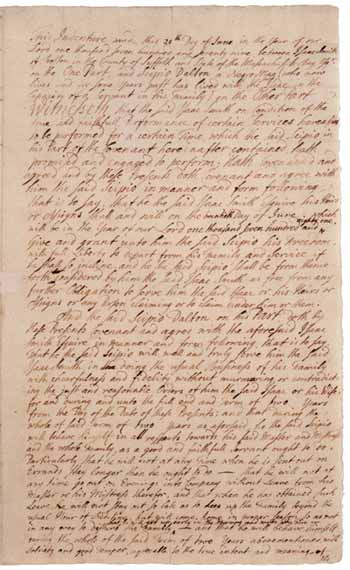 This Indenture made this 20th Day of June in the year of our
Lord one thousand seven hundred and seventy nine, between Isaac Smith
of Boston in the County of Suffolk and State of the Massachusetts Bay
on the One Part, and Scipio Dalton a Negro Man (who now
lives and for some years past has lived with the said Isaac in the
Capacity of a Servant in his Family) on the Other Part
Witnesseth that the said Isaac Smith on Condition of the
true and faithful Performance of certain Services hereafter
to be performed for a certain Time, which the said Scipio in
his Part of the Covenant hereinafter contained hath
promised and engaged to perform; Hath Covenanted and
agreed and by these Presents doth covenant and agree with
him the said Scipio in manner and form following,
that is to say, that he the said Isaac Smith Esquire his Heirs
or Assigns shall and will on the Day of June which
will be in the Year of our Lord one thousand seven hundred and eighty one,
Give and grant unto him the said Scipio his Freedom,
with full Liberty to depart from his Family and Service if
he shall so incline, and he the said Scipio shall be from thence
forth considered by him the said Isaac Smith as free from any
further Obligation to serve him the said Isaac, his Heirs or
Assigns or any Person claiming or to claim under him or them.
And the said Scipio Dalton on his Part doth by
these Presents Covenant and agree with the aforesaid Isaac
Smith Esquire in manner and form following, that is to say,
That he the said Scipio will well and truly serve him the said
Isaac Smith, in doing the usual Business of his Family
with cheerfulness and fidelity without murmuring or contradicting
the just and reasonable Orders of him the said Isaac or his Wife,
for and during and unto the full end and term of two Years
from the Day of the Date of these Presents; and that during the
whole of said Term of two Years as aforesaid, he the said Scipio
will behave himself in all respects towards his said Master and Mistress
and the whole Family, as a good and faithful Servant ought to do.
Particularly that he will not at any time when he is sent out on
Errands stay longer than he ought to do — that he will not at
any time go out on Evenings into Company without Leave from his
Master or his Mistress therefor, and that when he has obtained such
Leave he will not stay out so late as to keep up the Family beyond the
usual Hour of but will come home in proper Season so as not
in any ways to disturb the Family — and that he will behave himself
during the whole of the said Term of two Years abovementioned with
Sobriety and good Temper, agreeable to the true intent and meaning of